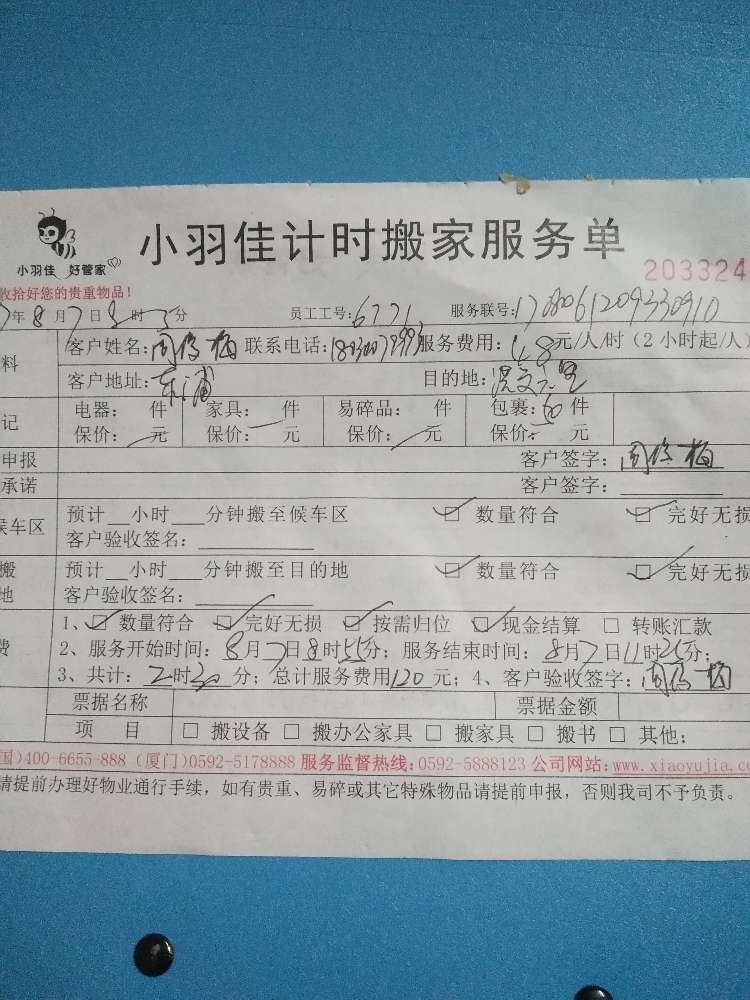 小羽佳计时搬家服务单
小羽佳 好管家
203324
收拾好您的贵重物品!
7年8月7日8时 分 员工工号:6771 服务联号:
客户姓名: 梅 联系电话: 服务费用:48元/人/时(2小时起/人)
料
客户地址:东浦 目的地:
电器: 件 家具: 件 易碎品: 件 包裹:50件
记
保价: 元 保价: 元 保价: 元 保价: 元
申报 客户签字: 梅
承诺 客户签字:
预计__小时___分钟搬至候车区 数量符合 完好无损
候车区
客户验收签名:
搬 预计__小时___分钟搬至目的地 数量符合 完好无损
地 客户验收签名:
1、数量符合 完好无损 按需归位 现金结算 □ 转账汇款
费 2、服务开始时间:8月7日8时55分;服务结束时间:8月7日11时25分;
3、共计:2时30分;总计服务费用120元;4、客户验收签字: 梅
票据名称 票据金额
项 目 □ 搬设备 □ 搬办公家具 □ 搬家具 □ 搬书 □ 其他:
国)400-6655-888 (厦门)0592-5178888 服务监督热线:0592-5888123 公司网站:www.xiaoyujia.co
请提前办理好物业通行手续,如有贵重、易碎或其它特殊物品请提前申报,否则我司不予负责。